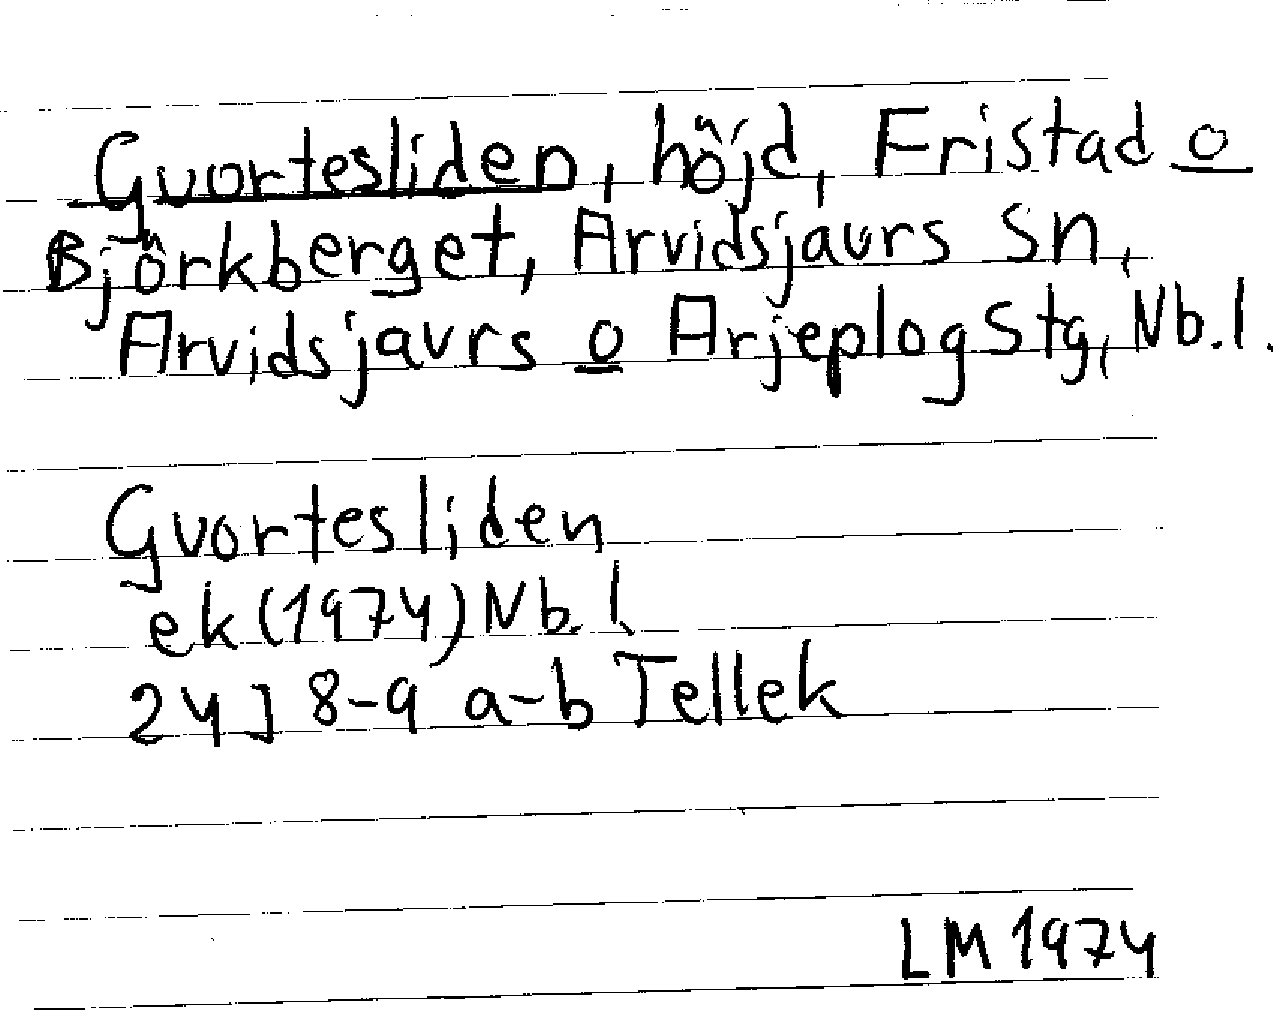 Gvortesliden, höjd, Fristad o
Björkberget, Arvidsjaurs sn,
Arvidsjavrs o Arjeplog Stg, Nb.l.
Gvortesliden
ek (1974) Nb.l.
24J 8-9 a-b Tellek
LM 1974